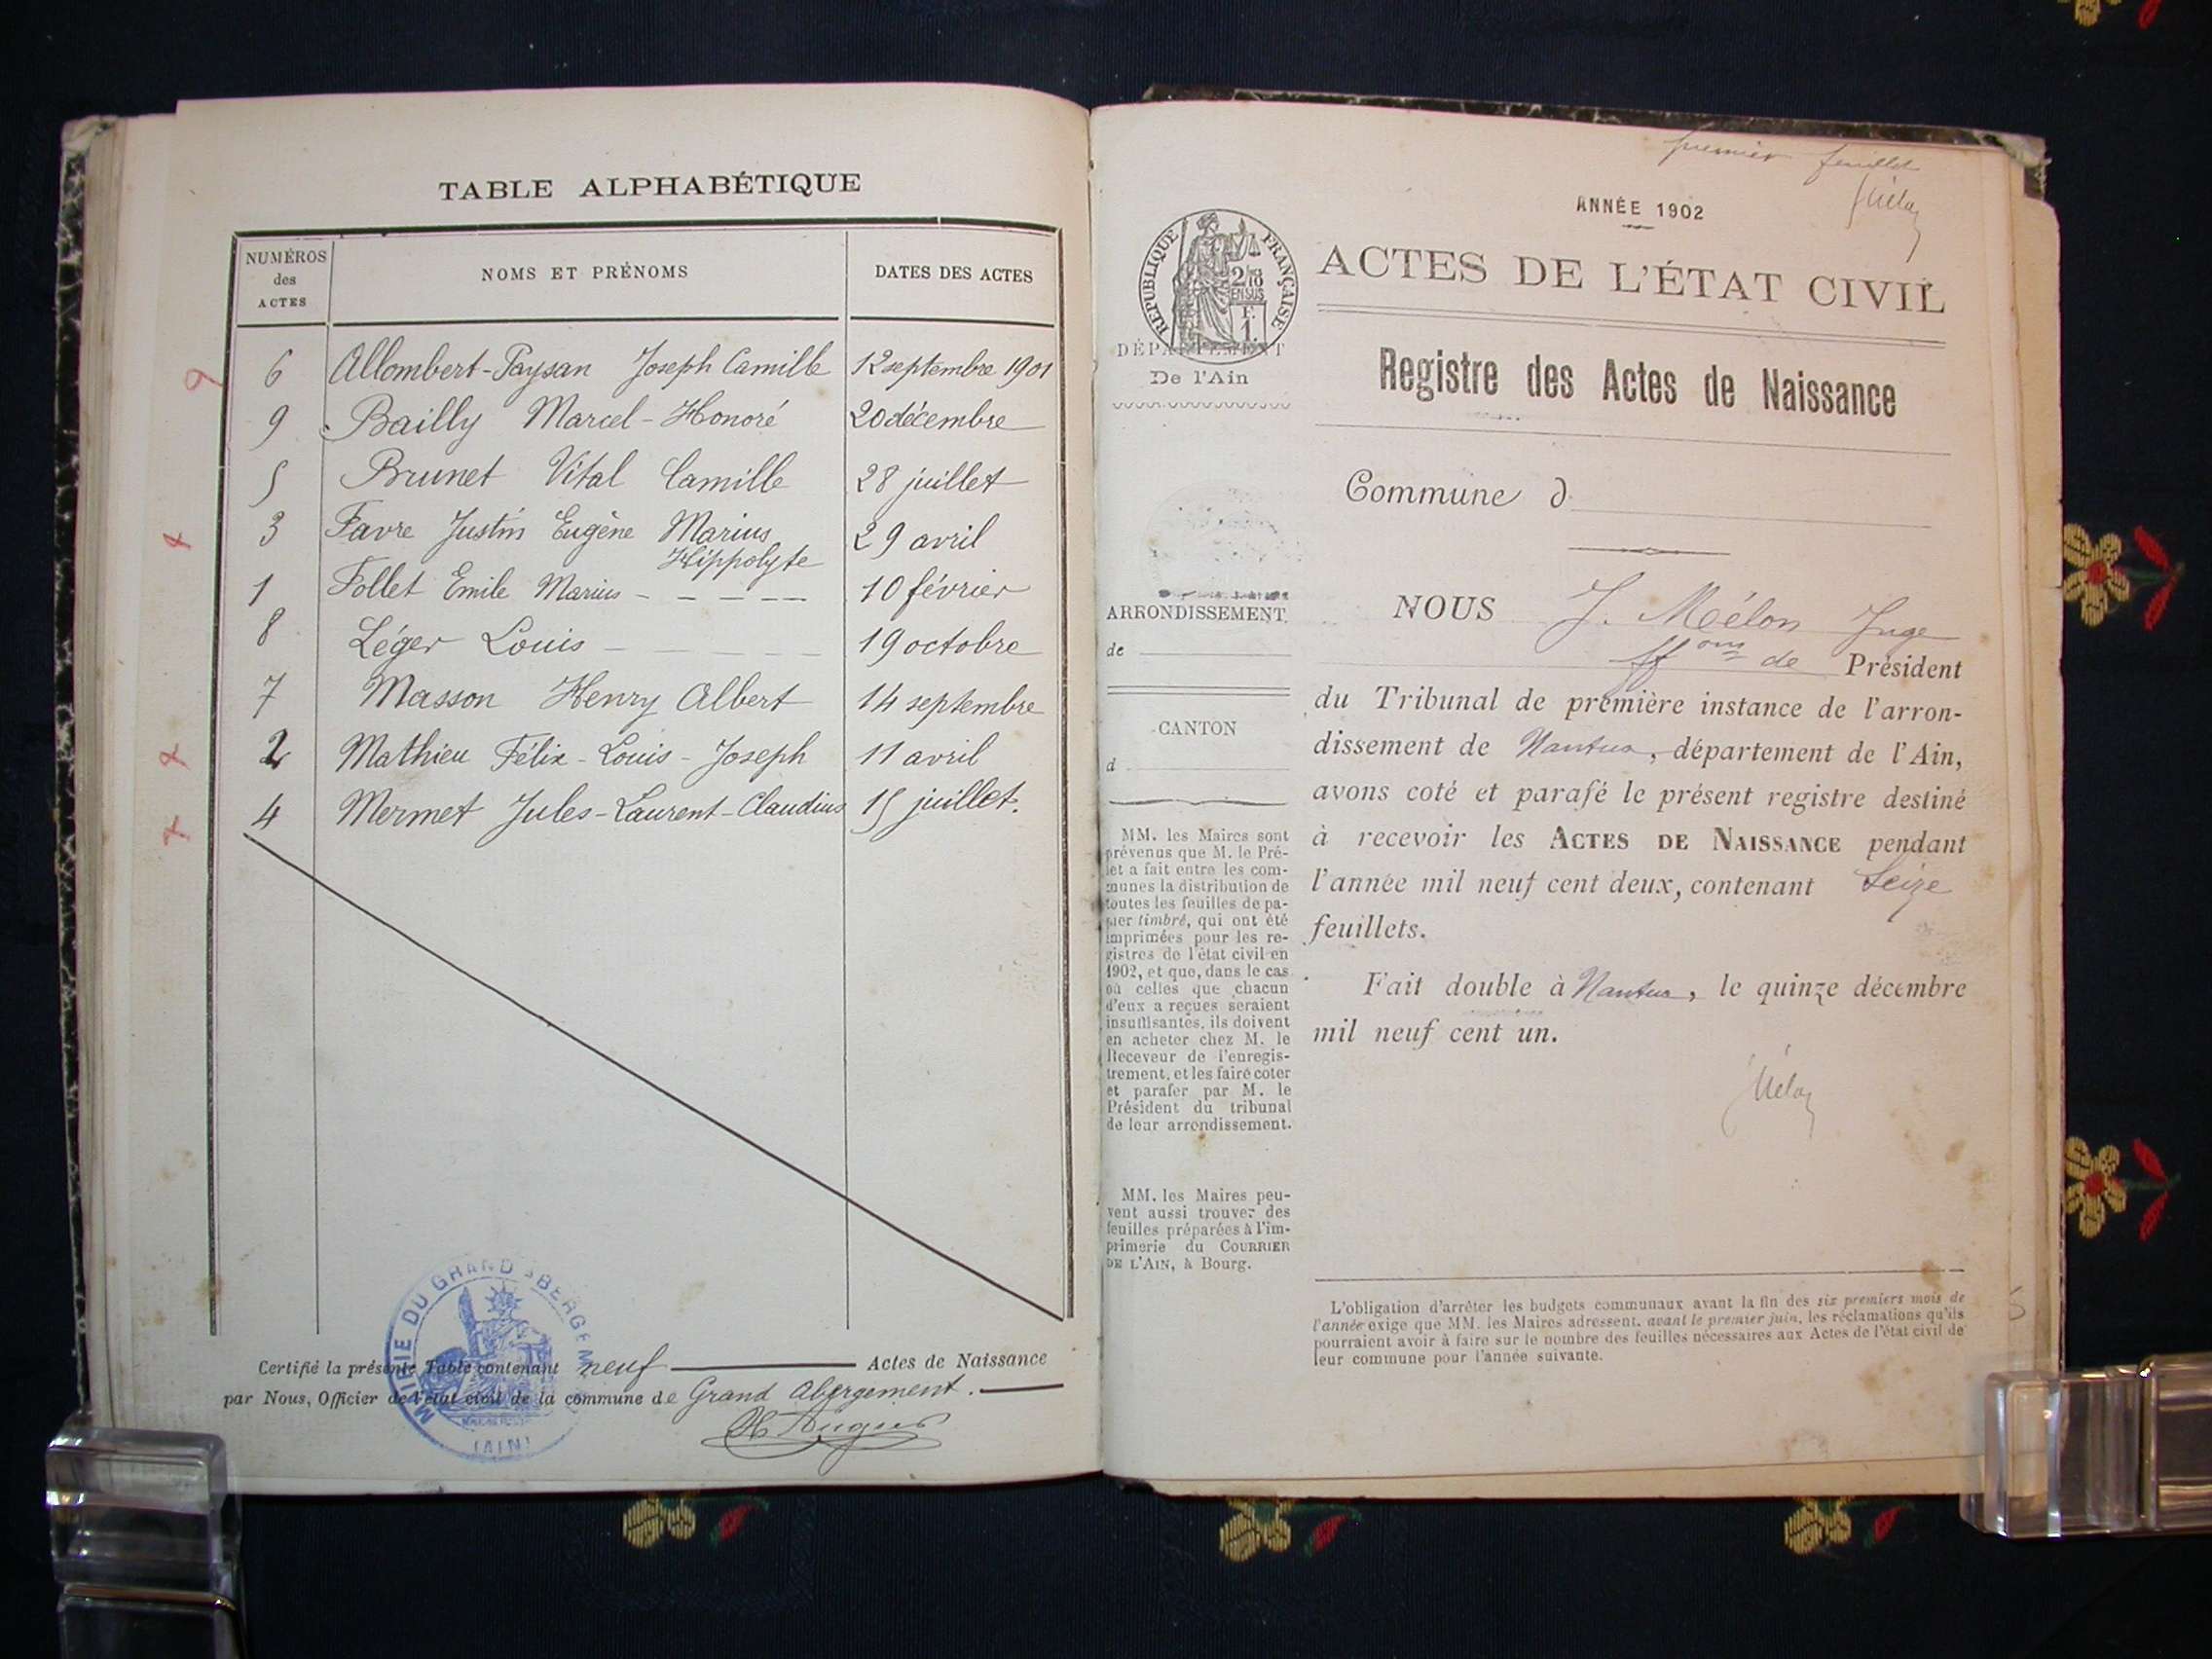 TABLE ALPHABÉTIQUE
NUMÉROS des ACTES
NOMS ET PRÉNOMS
DATES DES ACTES
9
6 Allombert-Paysan Joseph Camille 12 septembre 1901
9 Bailly Marcel-Honoré 20 décembre
5 Brunet Vital Camille 28 juillet
3 Favre Justin Eugène Marius 29 avril
Hippolyte
1 Follet Emile Marius - - - -- 10 février
8 Léger Louis - - - - - 19 octobre
7 Masson Henry Albert 14 septembre
2 Mathieu Félix-Louis-Joseph 11 avril
4 Mermet Jules-Laurent-Claudius 15 juillet.
Certifié la présente Table contenant neuf Actes de Naissance
par Nous, Officier de l'état civil de la commune de Grand Abergement.
MAIRIE DU GRAND ABERGEM
(AIN)
premier feuillet
ANNÉE 1902
RÉPUBLIQUE FRANÇAISE
2/10 EN SUS
F. 1
ACTES DE L'ÉTAT CIVIL
DÉPARTEMENT
De l'Ain
Registre des Actes de Naissance
Commune d
ARRONDISSEMENT
de
CANTON
d
NOUS J. Mélon Juge
ff ons de Président
du Tribunal de première instance de l'arron-
dissement de Nantua, département de l'Ain,
avons coté et parafé le présent registre destiné
à recevoir les ACTES DE NAISSANCE pendant
l'année mil neuf cent deux, contenant Seize
feuillets.
Fait double à Nantua, le quinze décembre
mil neuf cent un.
MM. les Maires sont
prévenus que M. le Pré-
fet a fait entre les com-
munes la distribution de
toutes les feuilles de pa-
pier timbré, qui ont été
imprimées pour les re-
gistres de l'état civil en
1902, et que, dans le cas
où celles que chacun
d'eux a reçues seraient
insuffisantes, ils doivent
en acheter chez M. le
Receveur de l'enregis-
trement, et les faire coter
et parafer par M. le
Président du tribunal
de leur arrondissement.
MM. les Maires peu-
vent aussi trouver des
feuilles préparées à l'im-
primerie du COURRIER
DE L'AIN, à Bourg.
L'obligation d'arrêter les budgets communaux avant la fin des six premiers mois de
l'année exige que MM. les Maires adressent, avant le premier juin, les réclamations qu'ils
pourraient avoir à faire sur le nombre des feuilles nécessaires aux Actes de l'état civil de
leur commune pour l'année suivante.